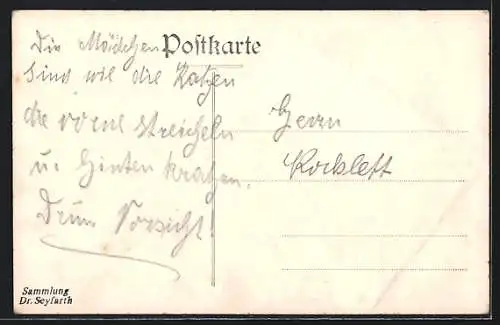 Postkarte
Die Mädchen
sind wie die Katzen
die vorne streicheln
u. hinten kratzen.
Drum Vorsicht!
Herrn
Sammlung
Dr. Seyfarth